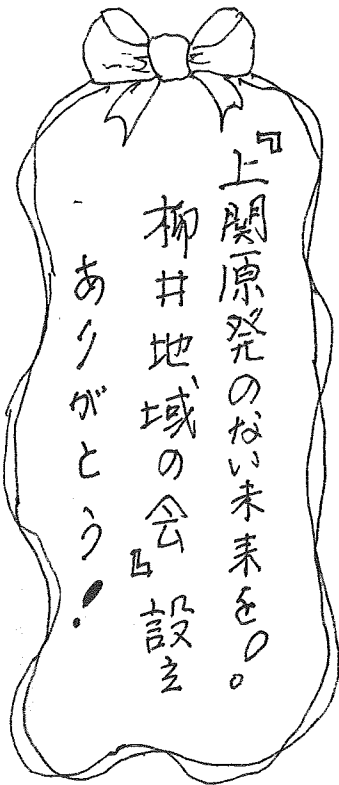 『上関原発のない未来を!。
柳井地域の会』設立
ありがとう!